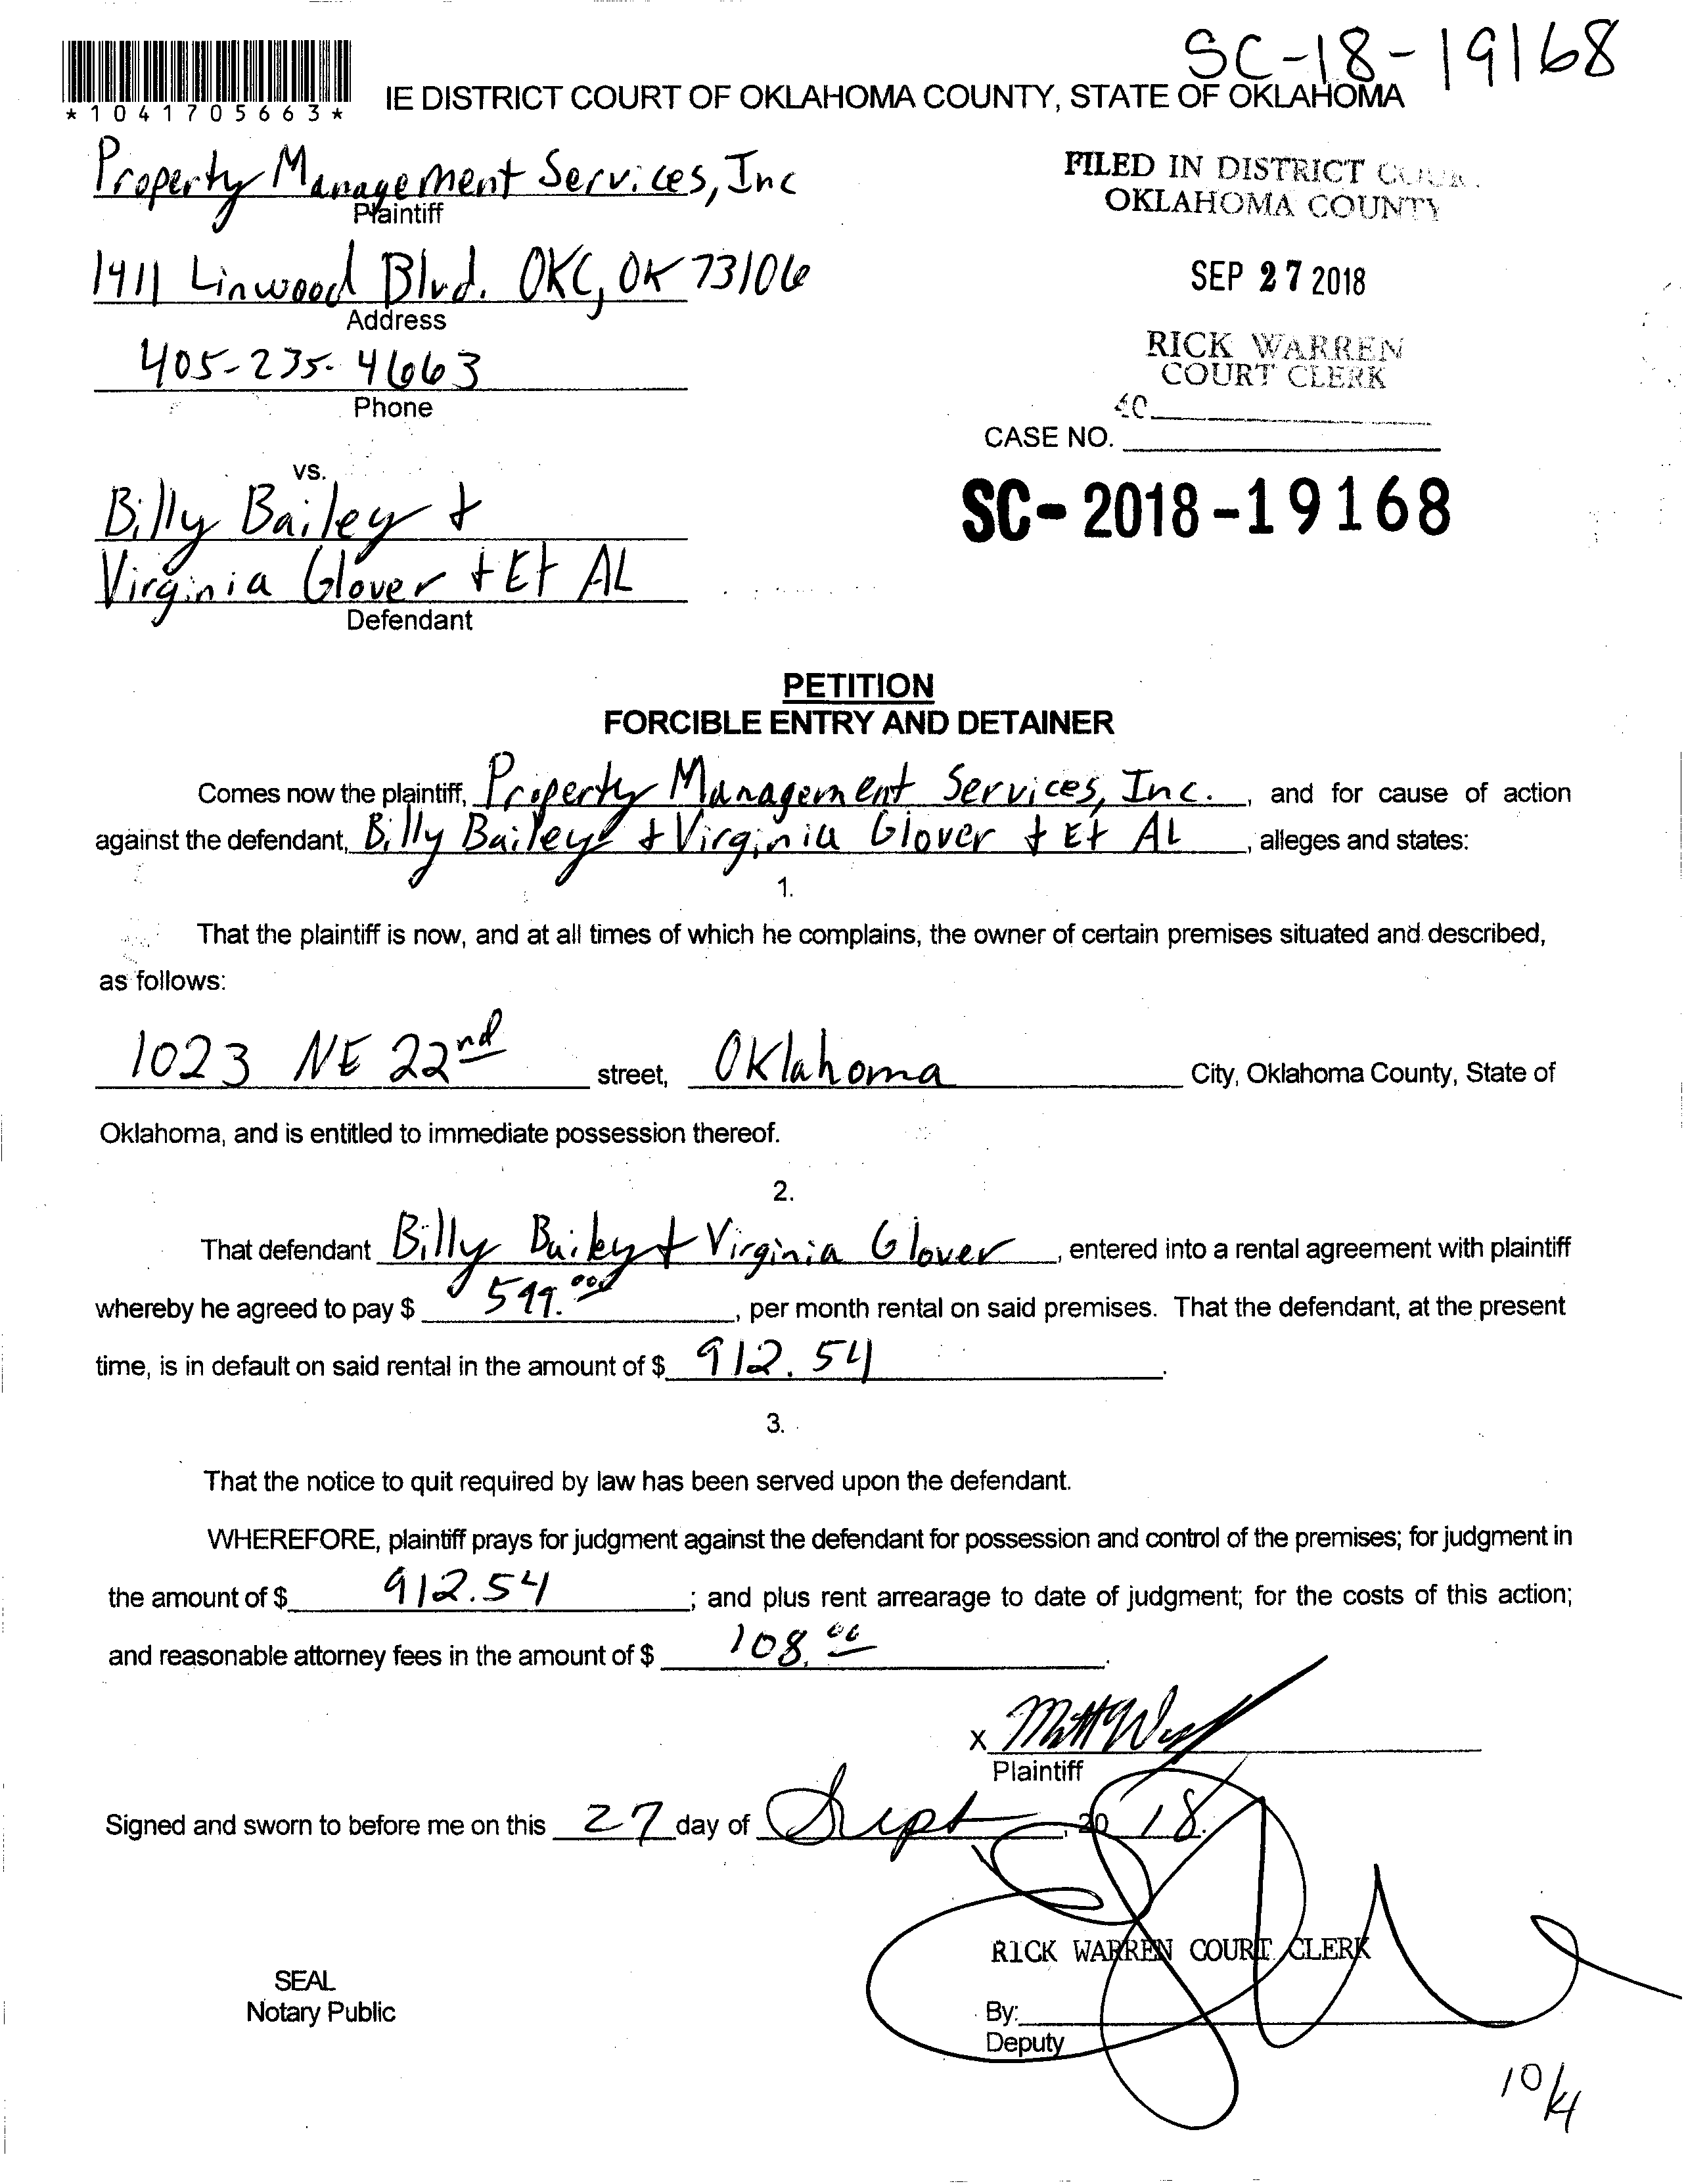 SC-18-19168
*1041705663*
IE DISTRICT COURT OF OKLAHOMA COUNTY, STATE OF OKLAHOMA
Property Management Services, Inc
Plaintiff
FILED IN DISTRICT
OKLAHOMA COUNTY
1411 Linwood Blvd. OKC, OK 73106
Address
SEP 27 2018
405-235-4663
Phone
RICK WARREN
COURT CLERK
40
CASE NO.
vs.
Billy Bailey +
Virginia Glover + Et AL
Defendant
SC-2018-19168
PETITION
FORCIBLE ENTRY AND DETAINER
Comes now the plaintiff, Property Management Services, Inc. , and for cause of action
against the defendant, Billy Bailey + Virginia Glover + Et AL , alleges and states:
1.
That the plaintiff is now, and at all times of which he complains, the owner of certain premises situated and described,
as follows:
1023 NE 22nd street, Oklahoma City, Oklahoma County, State of
Oklahoma, and is entitled to immediate possession thereof.
2.
That defendant Billy Bailey + Virginia Glover , entered into a rental agreement with plaintiff
whereby he agreed to pay $ 599.00 , per month rental on said premises. That the defendant, at the present
time, is in default on said rental in the amount of $ 912.54 .
3.
That the notice to quit required by law has been served upon the defendant.
WHEREFORE, plaintiff prays for judgment against the defendant for possession and control of the premises; for judgment in
the amount of $ 912.54 ; and plus rent arrearage to date of judgment; for the costs of this action;
and reasonable attorney fees in the amount of $ 108.00 .
X
Plaintiff
Signed and sworn to before me on this 27 day of Sept , 20 18.
RICK WARREN COURT CLERK
SEAL
Notary Public
By:
Deputy
10/4